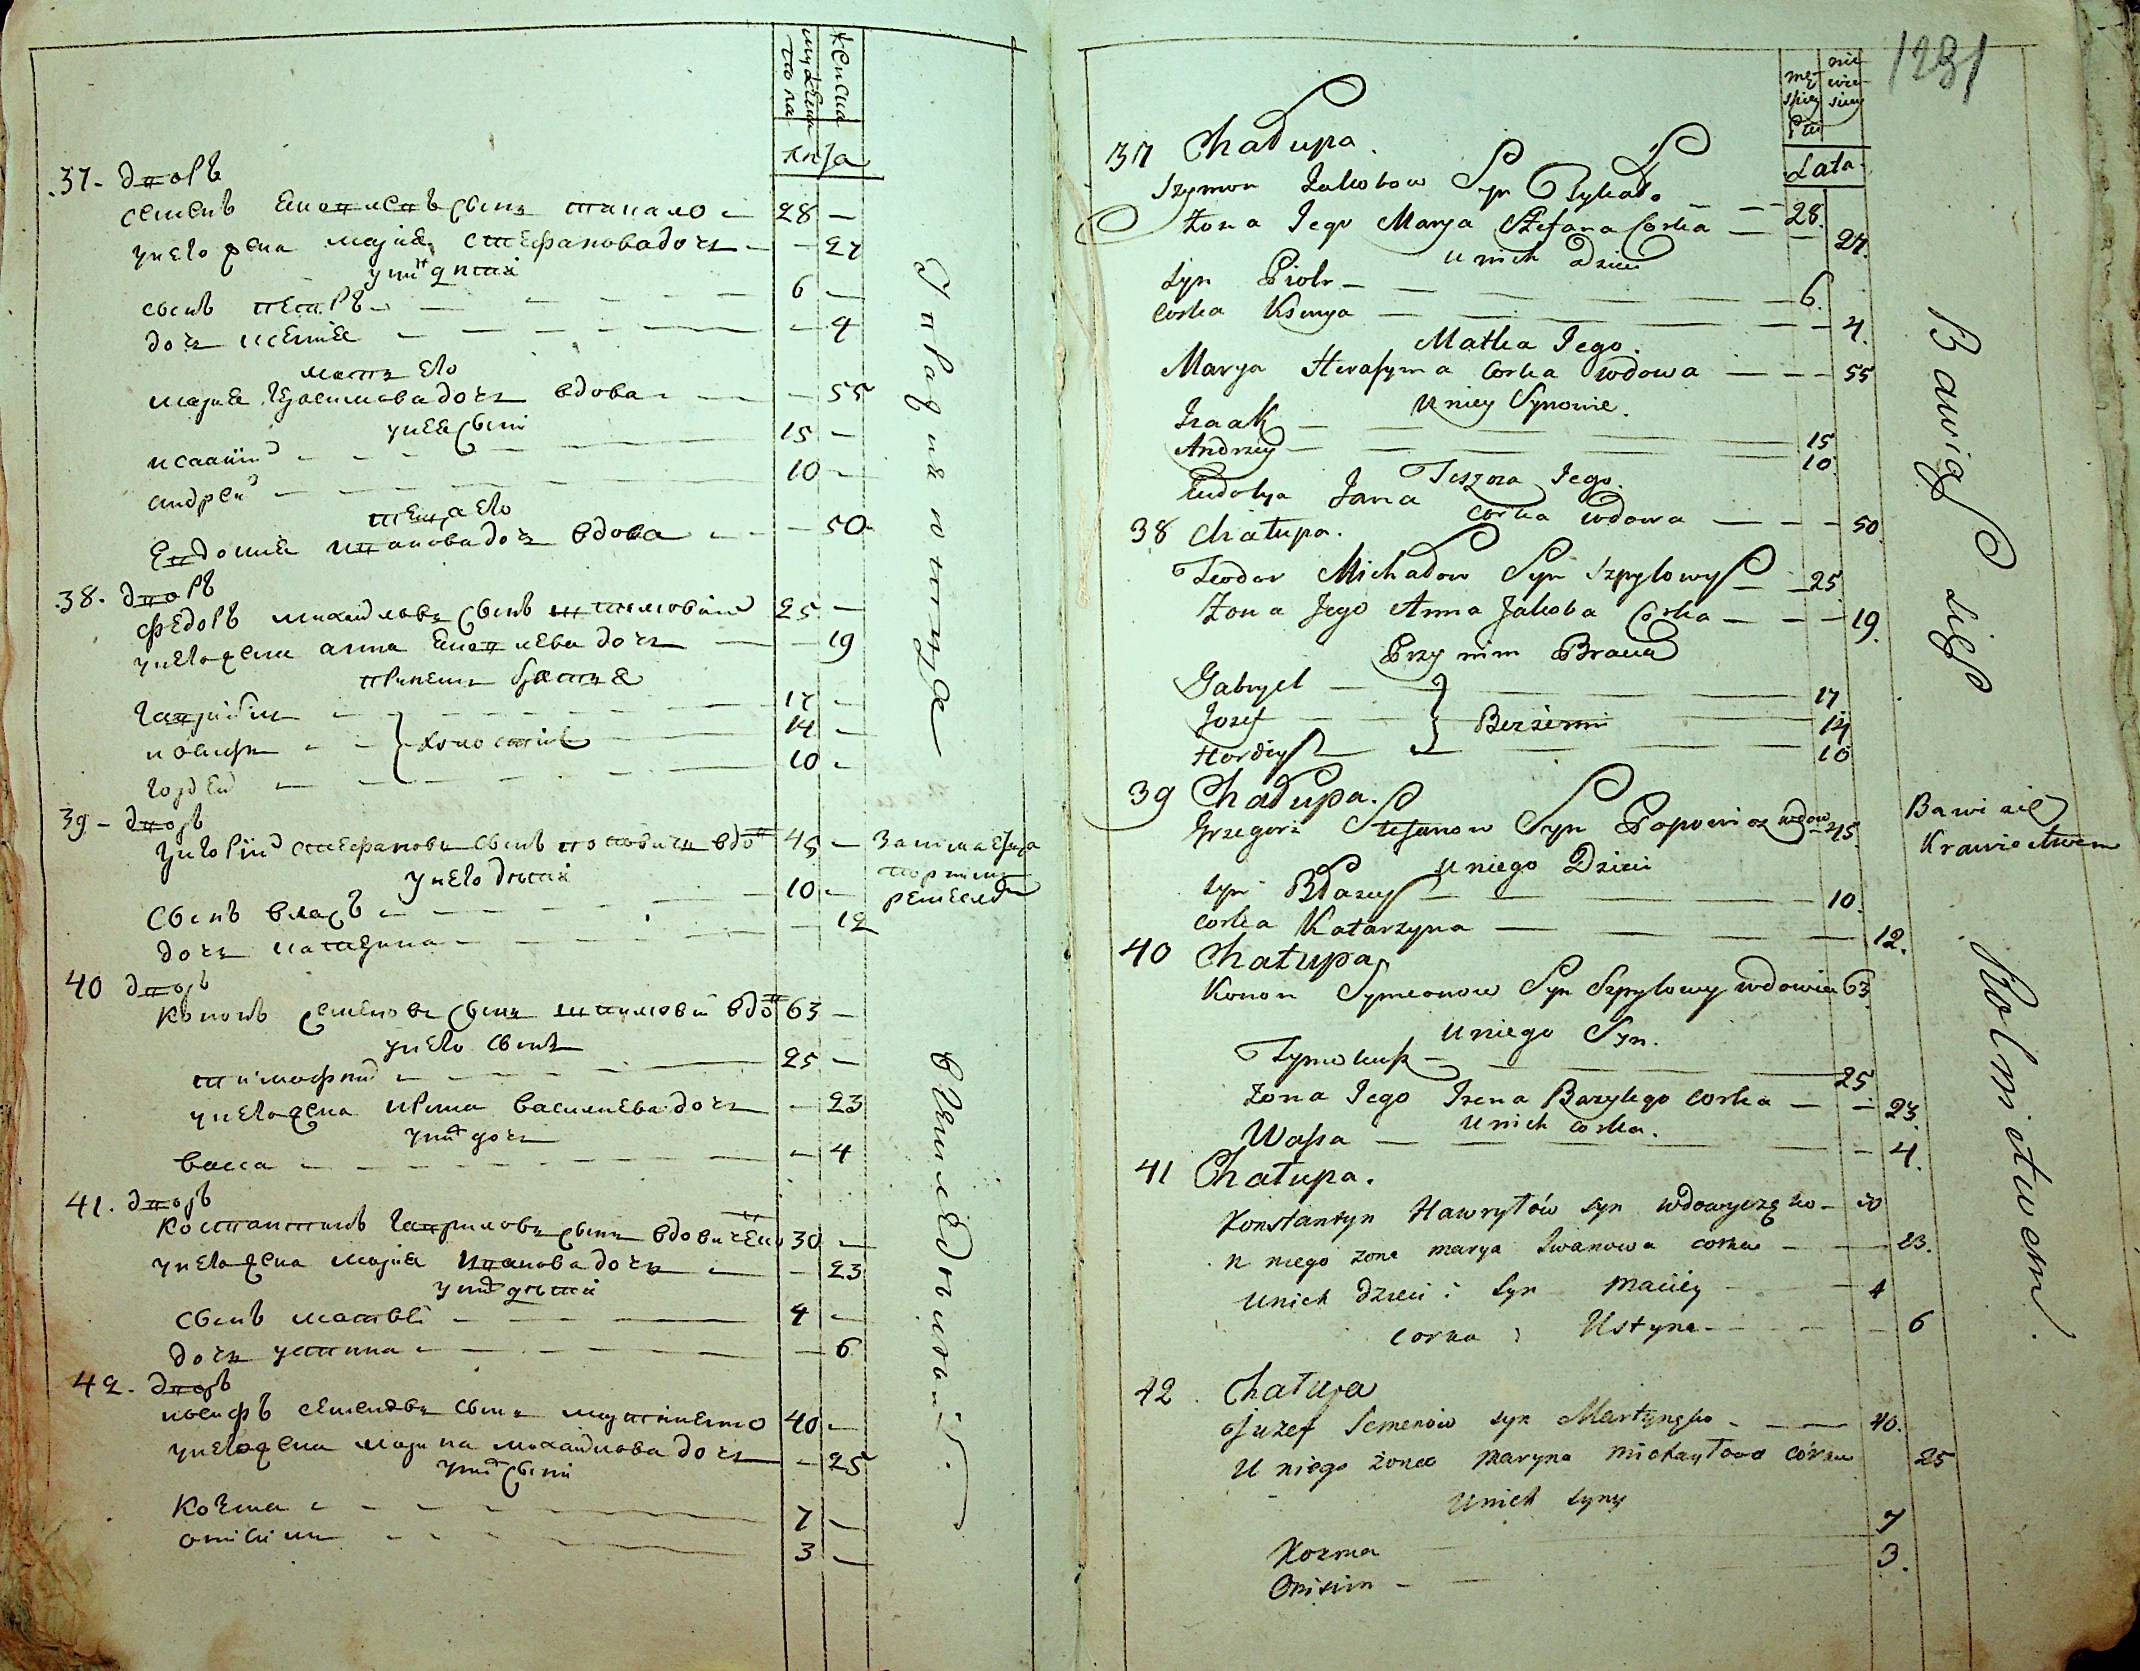 мужеска
пола
женска
лѣта
37. дворъ
семенъ сынъ 28
у него жена марія стефанова дочь 27
у них дѣти
сынъ петръ 6
дочь ксенія 4
мать его
марія герасимова дочь вдова 55
у нея сыни
исаакій 15
андрей 10
теща его
евдокія иванова дочь вдова 50
38. дворъ
федоръ михайловъ сынъ шпилиовій 25
у него жена анна дочь 19
при нем братья
гавріил 17
иосиф } холостіе 14
гордей 10
39 дворъ
григорій стефановъ сынъ поповичъ вдов 45 Занимается
портним
ремеслом
у него дѣти
сынъ власъ 10
дочь катерина 12
40 дворъ
кононъ семеновъ сынъ шпилиовій вдов 63
у него сынъ
тимофій 25
у него жена ирина василиева дочь 23
у них дочь
васса 4
41. дворъ
костантинъ гавриловъ сынъ вдовиченко 30
у него жена марія иванова дочь 23
у них дѣти
сынъ матвѣй 4
дочь устина 6
42. дворъ
иосифъ семеновъ сынъ 40
у него жена марина михайлова дочь 25
у них сыни
козма 7
онисим 3
упражняются
в земледѣлии
1281
męskiey
płci
niewiesciey
Lata
37 Chałupa.
Szymon Jakobow Syn Pykało 28.
Żona Jego Marya Stefana Corka 27.
u nich dzieci
Syn Piotr 6.
Corka Ksenya 4.
Matka Jego.
Marya Herasyma Corka wdowa 55
u niey Synowie.
Izaak 15
Andrzey 10
Teszcza Jego.
Eudokya Jana Corka wdowa 50.
38 Chałupa.
Teodor Michałow Syn Szpylowy 25.
Żona Jego Anna Jakoba Corka 19.
Przy nim Bracia
Gabryel 17
Jozef } Bezżenni 14
Hordiy 10
39 Chałupa.
Grzegorz Stefanow Syn Popowicz wdow 45. Bawi się
Krawiectwem
u niego Dzieci
Syn Błazey 10.
Corka Katarzyna 12.
40 Chałupa
Konon Symeonow Syn Szpylowy wdowiec 63
u niego Syn.
Tymofiey 25
Żona Jego Irena Bazylego corka 23.
u nich corka.
Wassa 4.
41 Chałupa.
Konstantyn Hawryłów syn wdowyczęko 30
u niego żona marya Iwanowa corka 23.
u nich dzieci: Syn Maciey 4
corka: Ustyna 6
42 Chałupa
Juzef Semenów syn Martynęko 40.
U niego żona Maryna michayłowa córka 25
U nich syny
Kozma 7
Onisim 3.
Bawią się Rolnictwem.